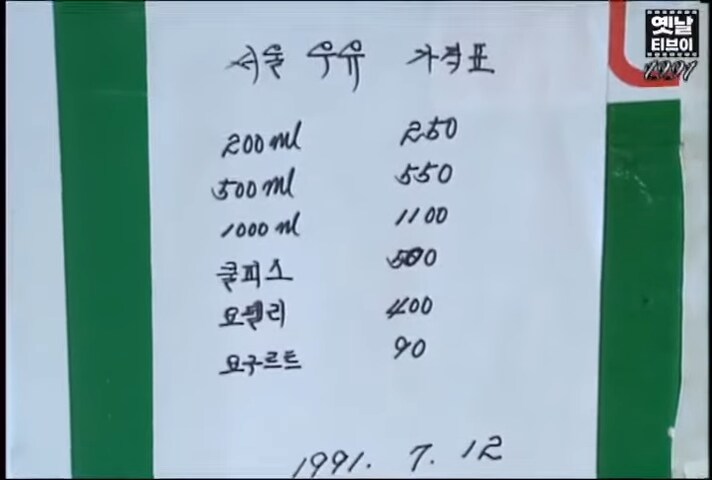 옛날
티브이
1991
서울 우유 가격표
200ml 250
500ml 550
1000ml 1100
쿨피스 500
요델리 400
요구르트 90
1991. 7. 12